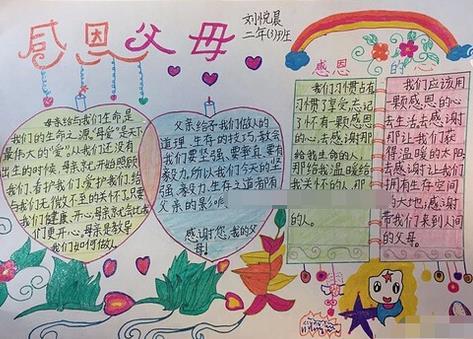 感恩父母
刘悦晨
二年(3)班
母亲给与我们生命,是
我们的生命之源,"母爱"是天下
最伟大的"爱",从我们还没有
出生的时候,母亲就开始照顾
我们,看护我们,爱护我们,给
与我们无微不至的关怀了,只要
我们健康、开心,母亲就会比我
们更开心,母亲是教导
我们如何做人,
父亲给予我们做人的
道理,生存的技巧,教会
我们要坚强,要率真,要有
毅力,所以我们今天的坚
强、毅力、生存之道都有
父亲的影
感谢您,我的父
母!
感恩的心
我们习惯占有
习惯了享受,忘记
了怀有一颗感恩
的心去感谢那
给我生命的人,
那给我温暖给
我关怀的人,那
的人。
我们应该用
一颗感恩的心
去生活,去感谢
那让我们获
得温暖的太阳
去感谢那让我们
拥有生存空间
的大地,感谢
带我们来到人间
的父母。